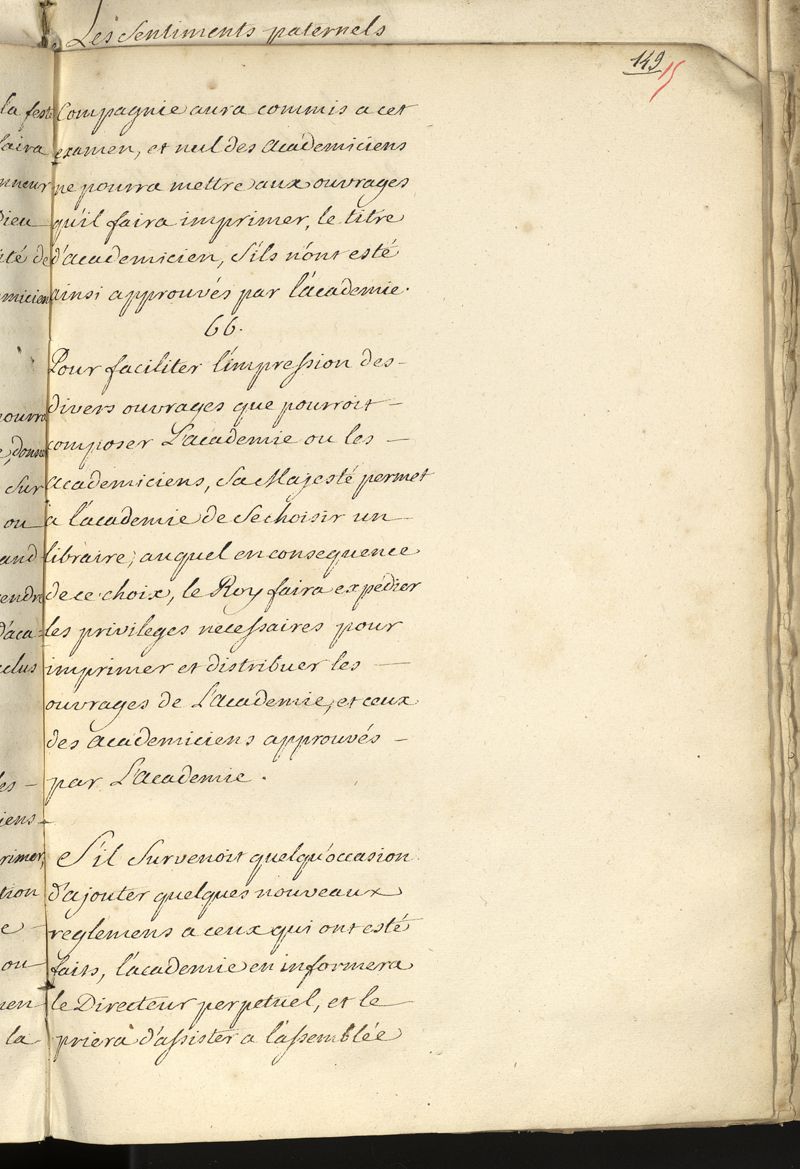 Les sentiments paternels
149
15
Compagnie aura commis a cet
examen, et nul des academiciens
ne pourra mettre aux ouvrages
qu'il faira imprimer, le titre
d'academicien, s'ils n'ont esté
ainsi approuvés par l'academie.
66.
Pour faciliter l'impression des
divers ouvrages que pourroit
composer L'academie ou les
academiciens, sa Majesté permet
a l'academie de se choisir un
libraire; auquel en consequence
de ce choix, le Roy faira expedier
les privileges necessaires pour
imprimer et distribuer les
ouvrages de L'academie, et ceux
des academiciens approuvés
par L'academie.
S'il survenoit quelqu'occasion
d'ajouter quelques nouveaux
reglemens a ceux qui ont esté
faits, l'academie en informera
le Directeur perpetuel, et le
priera d'assister a l'assemblée